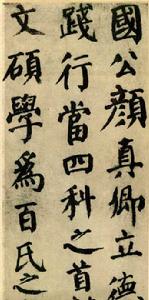 國公顏真卿立德
踐行當四科之首
文碩學為百氏之